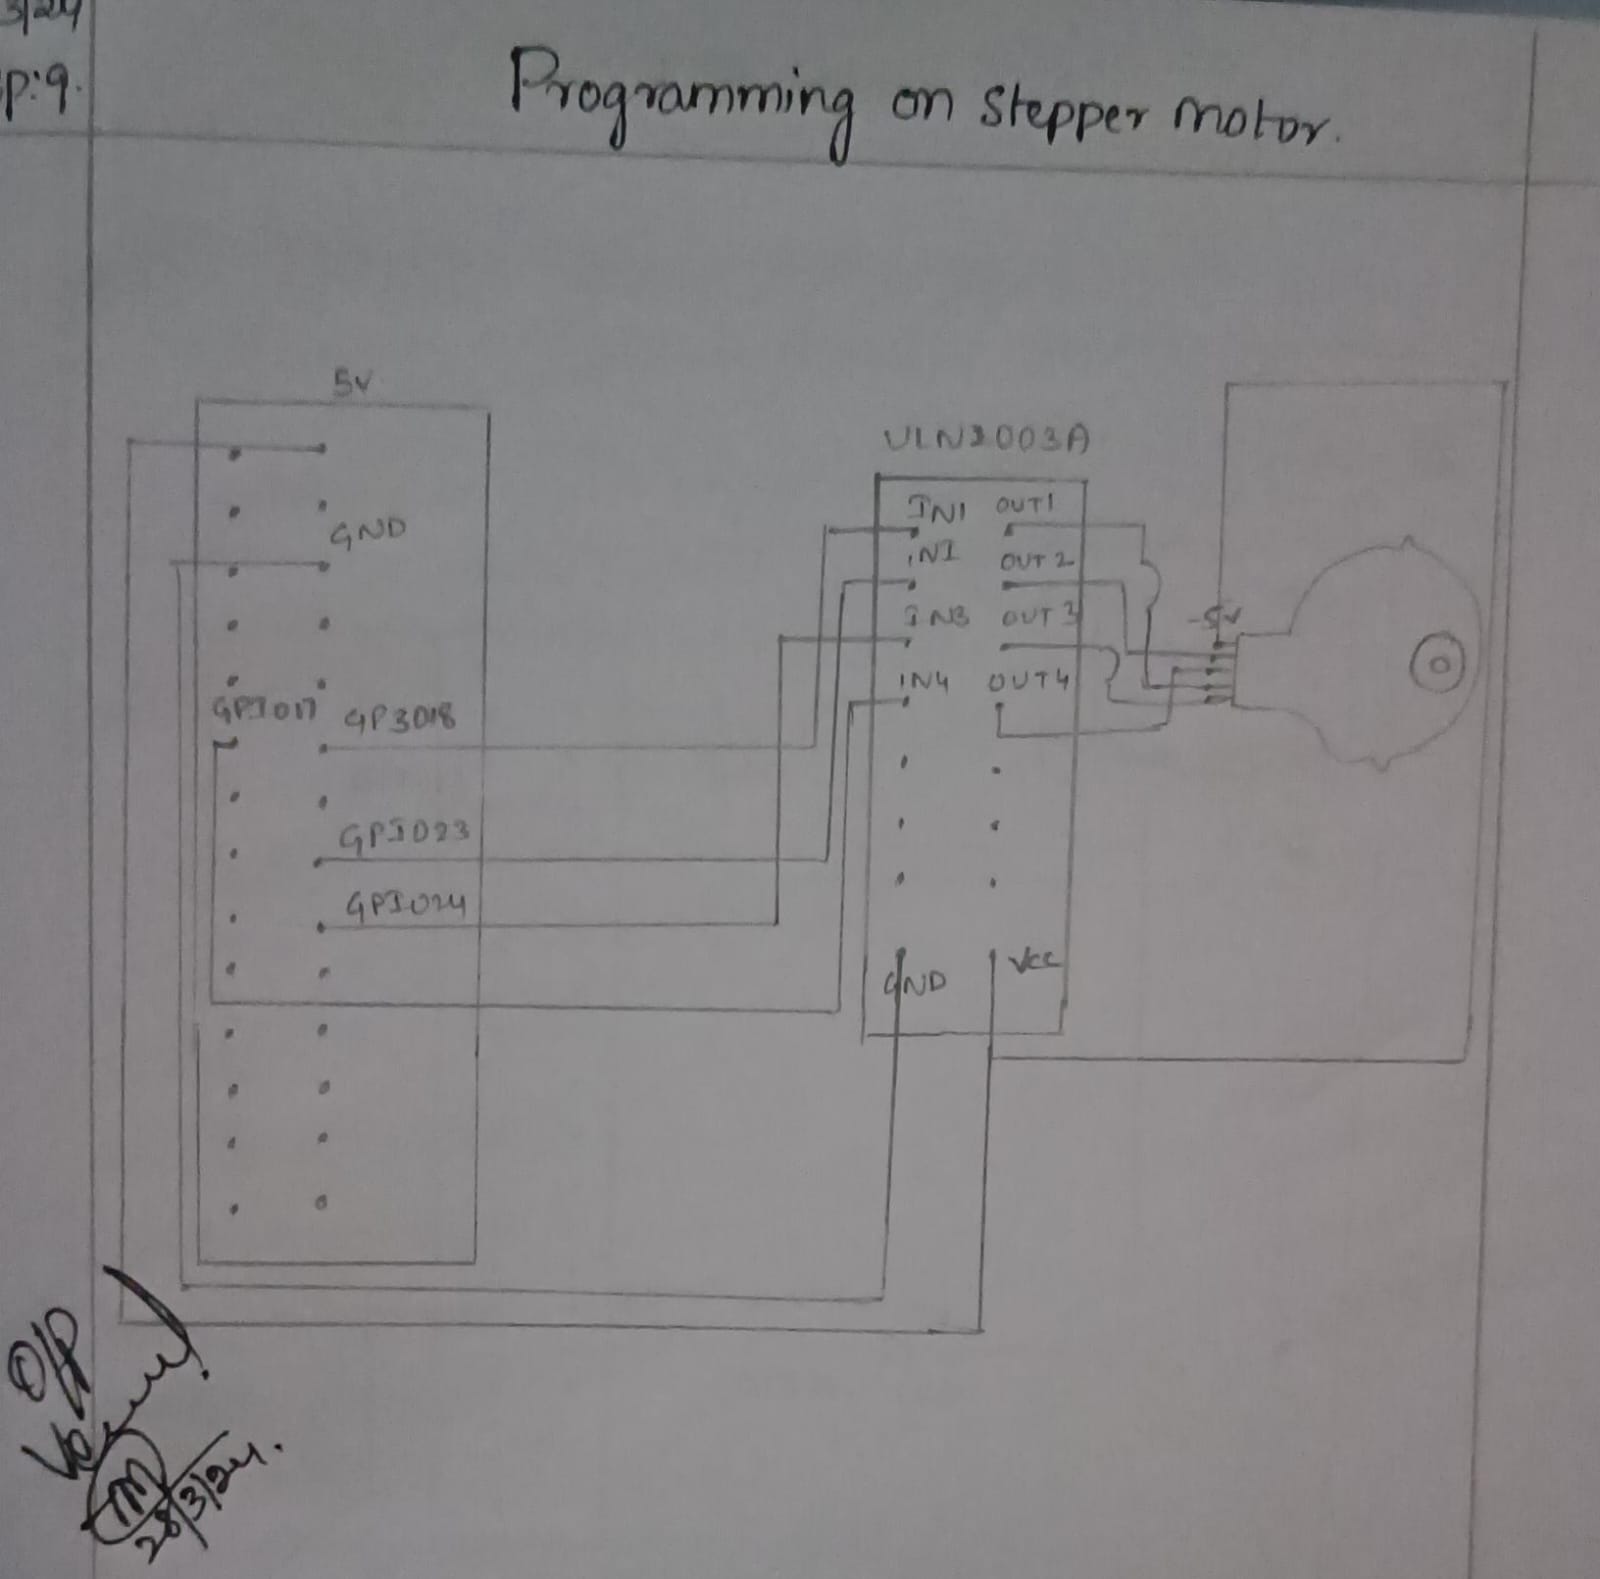 3/24
p:9.
Programming on stepper motor.
5V
GND
GPIO17 GP3018
GPIO23
GPIO24
ULN2003A
IN1 OUT1
IN2 OUT2
IN3 OUT3
IN4 OUT4
GND VCC
-5V
O/P
28/3/24.